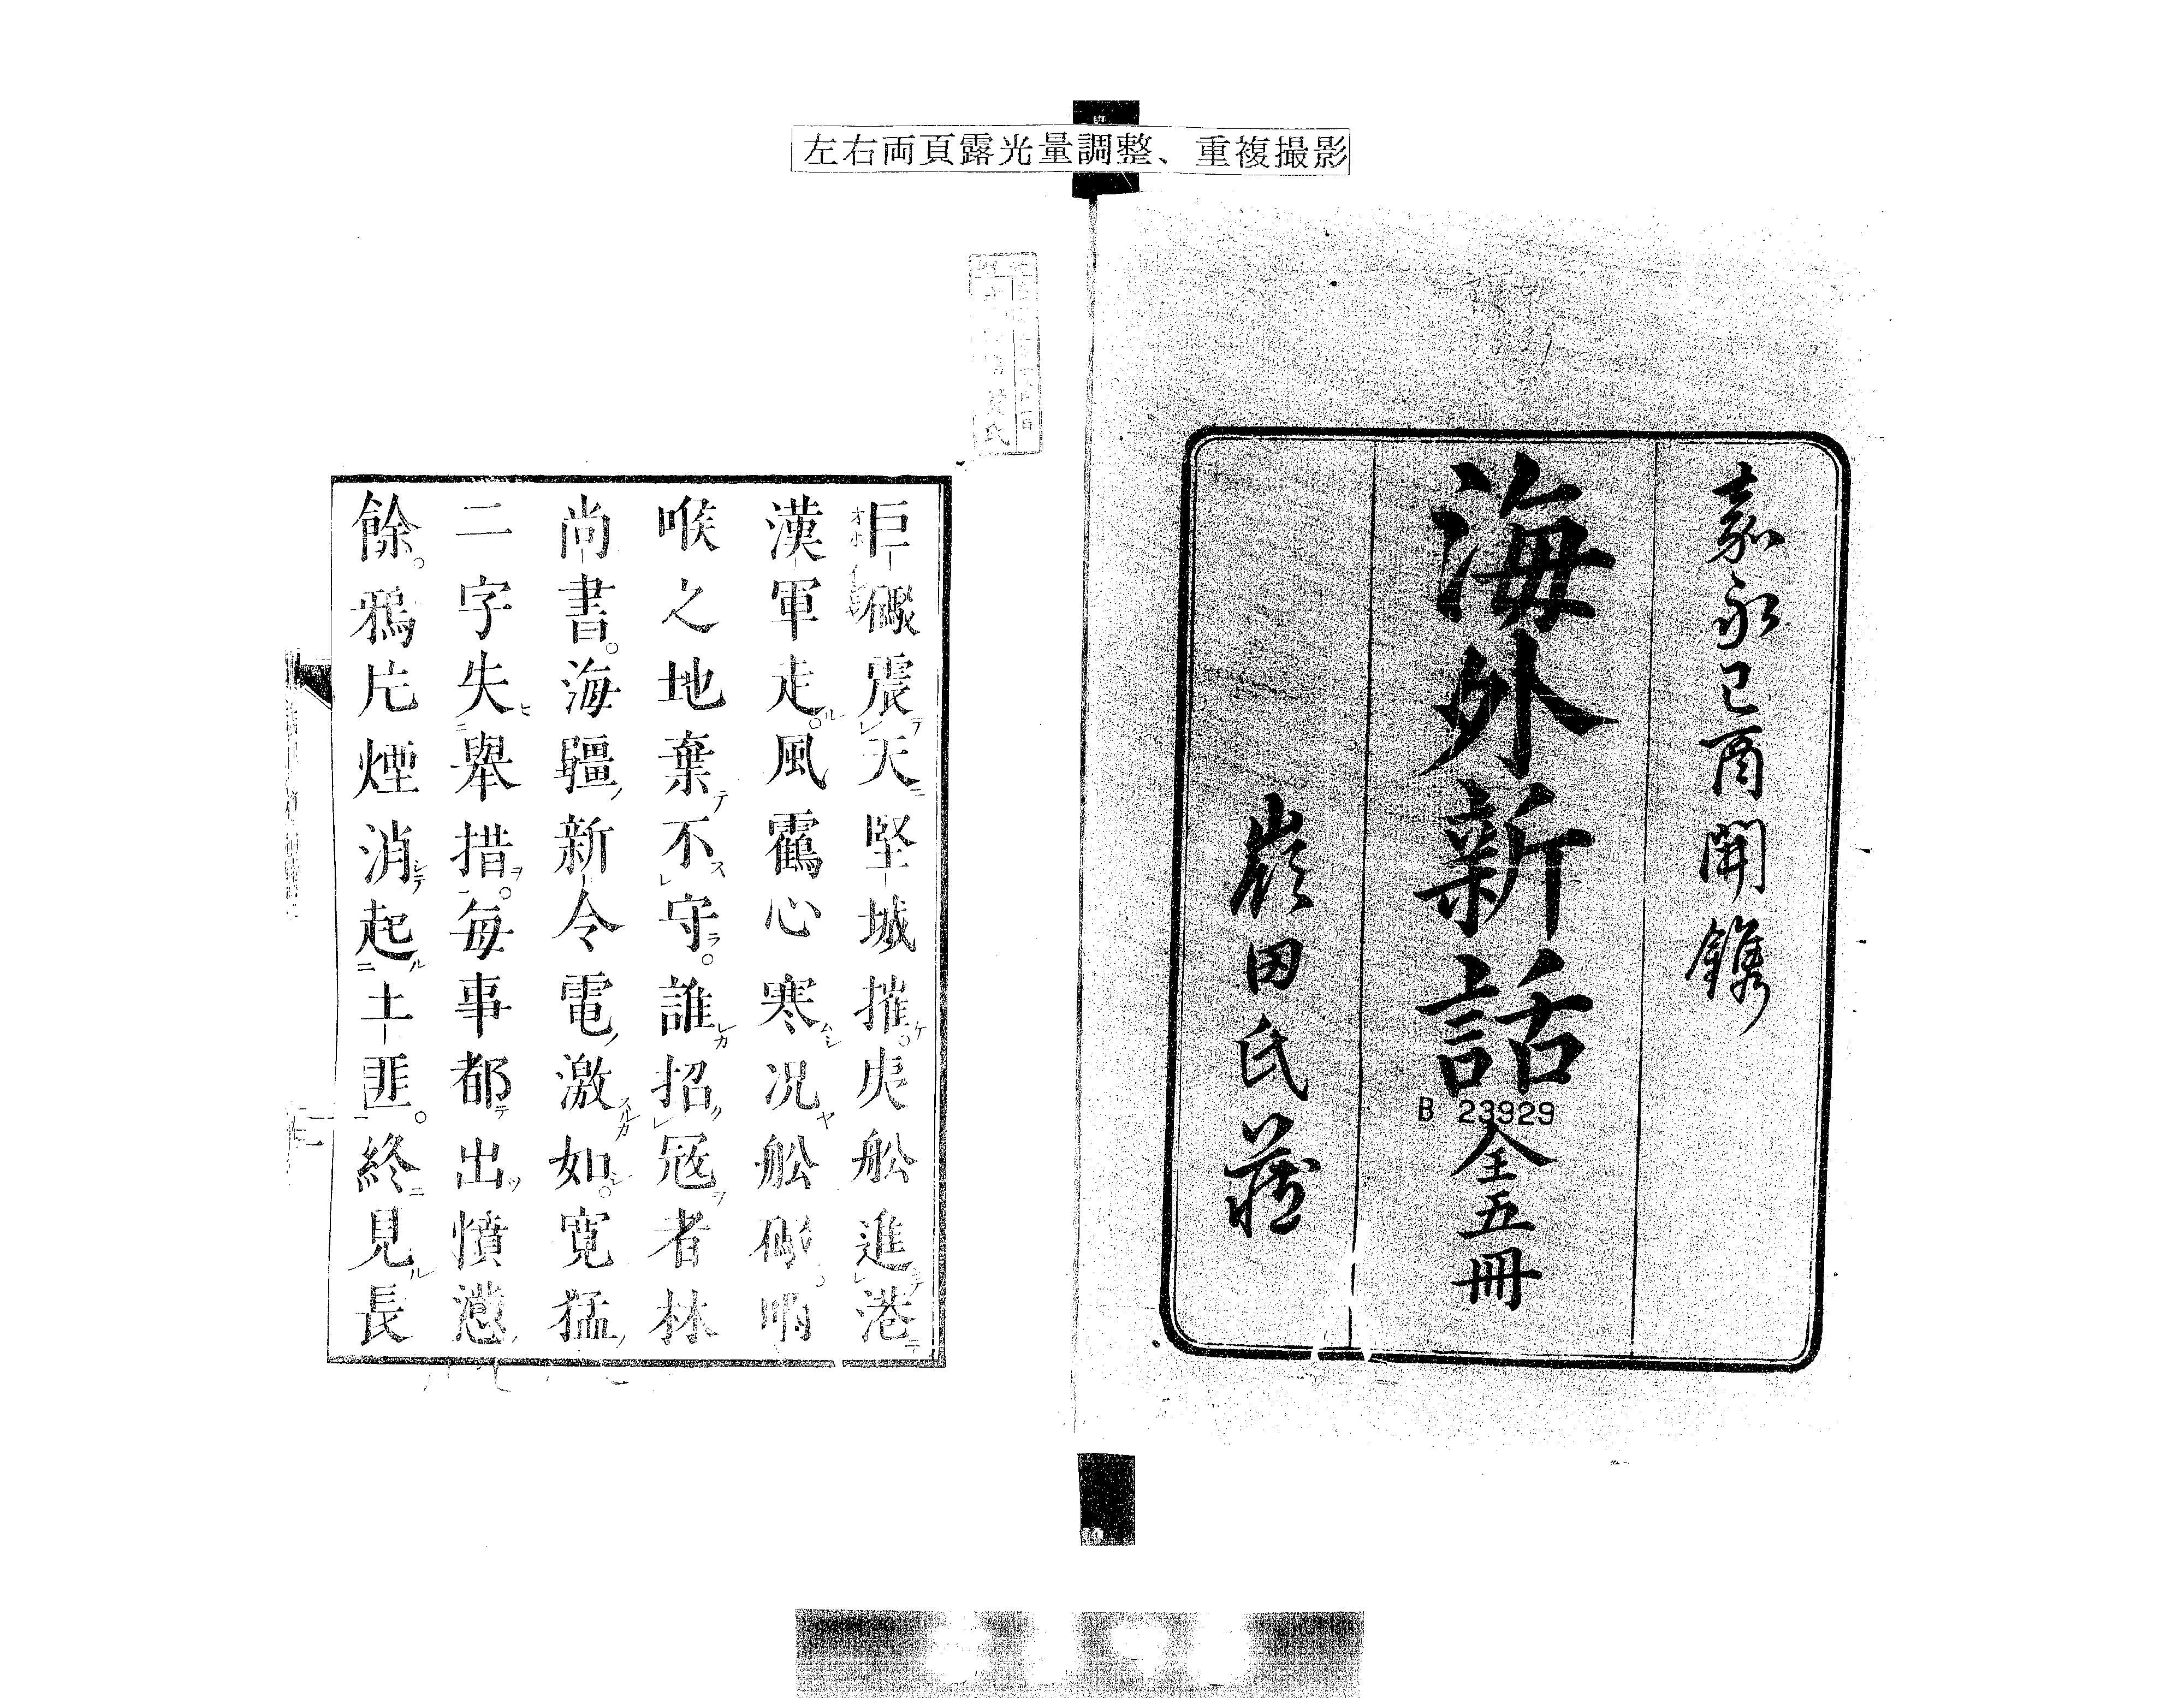 左右両頁露光量調整、重複撮影
嘉永己酉開鐫
海外新話
B 23929
全五冊
嶺田氏蔵
巨礮震天堅城摧。夷舩進港
漢軍走。風鶴心寒况舩礮响
喉之地棄不守。誰招冦者林
尚書。海疆新令電激如。寛猛
二字失舉措。毎事都出憤懣
餘。鴉片煙消起土匪。終見長